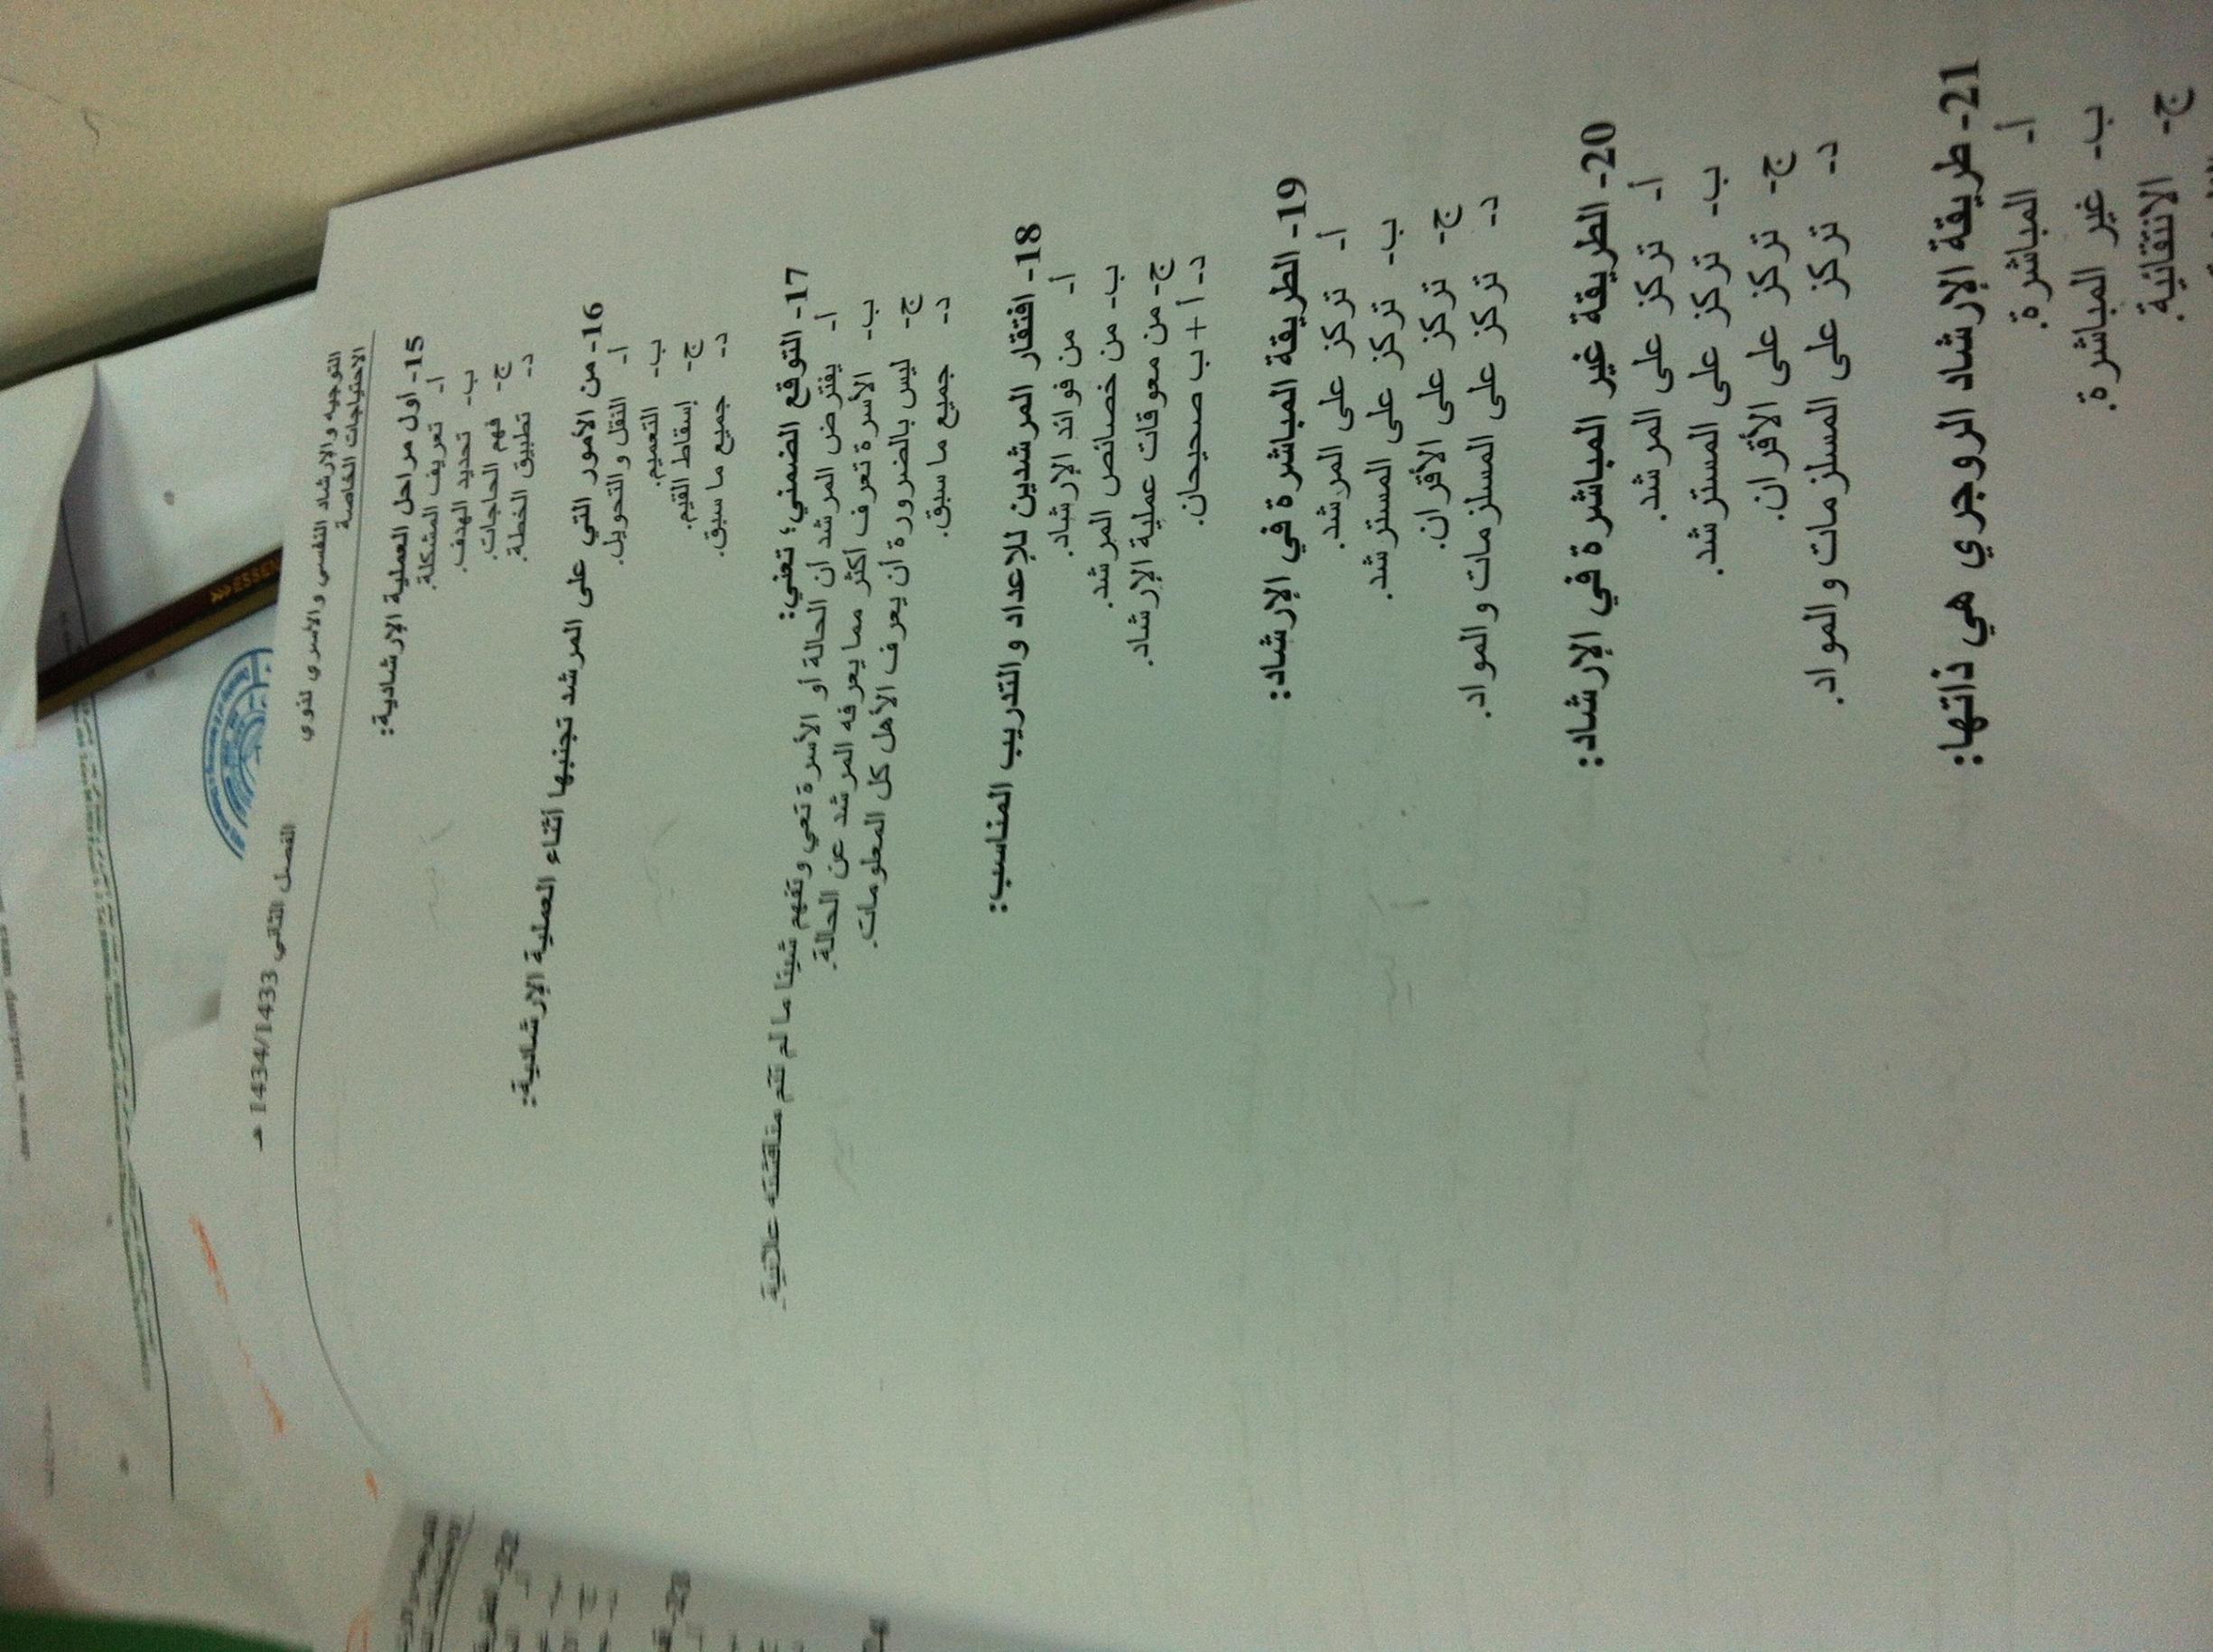 التوجيه والإرشاد النفسي والأسري لذوي
الاحتياجات الخاصة
الفصل الثاني 1434/1433 هـ
15- أول مراحل العملية الإرشادية:
أ- تعريف المشكلة.
ب- تحديد الهدف.
ج- فهم الحاجات.
د- تطبيق الخطة.
16- من الأمور التي على المرشد تجنبها أثناء العملية الإرشادية:
أ- النقل والتحويل.
ب- التعميم.
ج- إسقاط القيم.
د- جميع ما سبق.
17- التوقع الضمني؛ تعني:
أ- يفترض المرشد أن الحالة أو الأسرة تعي وتفهم شيئا ما لم تتم مناقشته علانية.
ب- الأسرة تعرف أكثر مما يعرفه المرشد عن الحالة.
ج- ليس بالضرورة أن يعرف الأهل كل المعلومات.
د- جميع ما سبق.
18- افتقار المرشدين للإعداد والتدريب المناسب:
أ- من فوائد الإرشاد.
ب- من خصائص المرشد.
ج- من معوقات عملية الإرشاد.
د- أ + ب صحيحان.
19- الطريقة المباشرة في الإرشاد:
أ- تركز على المرشد.
ب- تركز على المسترشد.
ج- تركز على الأقران.
د- تركز على المسلزمات والمواد.
20- الطريقة غير المباشرة في الإرشاد:
أ- تركز على المرشد.
ب- تركز على المسترشد.
ج- تركز على الأقران.
د- تركز على المسلزمات والمواد.
21- طريقة الإرشاد الروجري هي ذاتها:
أ- المباشرة.
ب- غير المباشرة.
ج- الانتقائية.